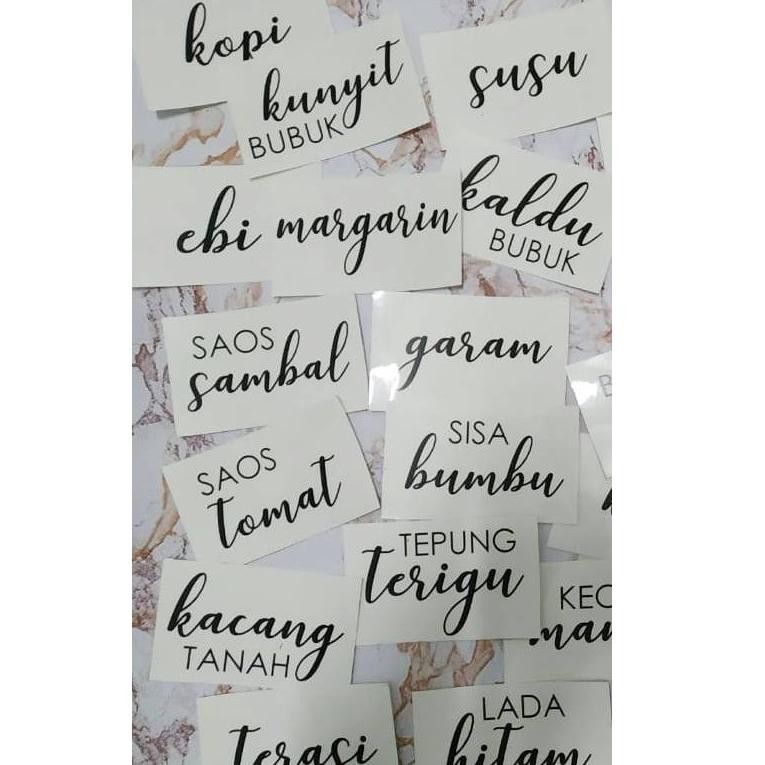 kopi
kunyit
BUBUK
susu
ebi
margarin
kaldu
BUBUK
SAOS
sambal
garam
SAOS
tomat
SISA
bumbu
TEPUNG
terigu
kacang
TANAH
terasi
LADA
hitam